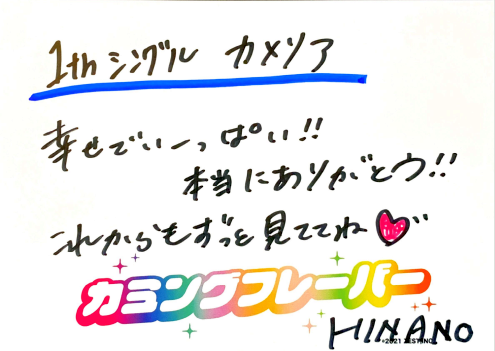 1th シングル カメリア
幸せでいーっぱい!!
本当にありがとウ!!
これからもずっと見ててね
カミングフレーバー
HINANO
©2021 ZEST, INC.